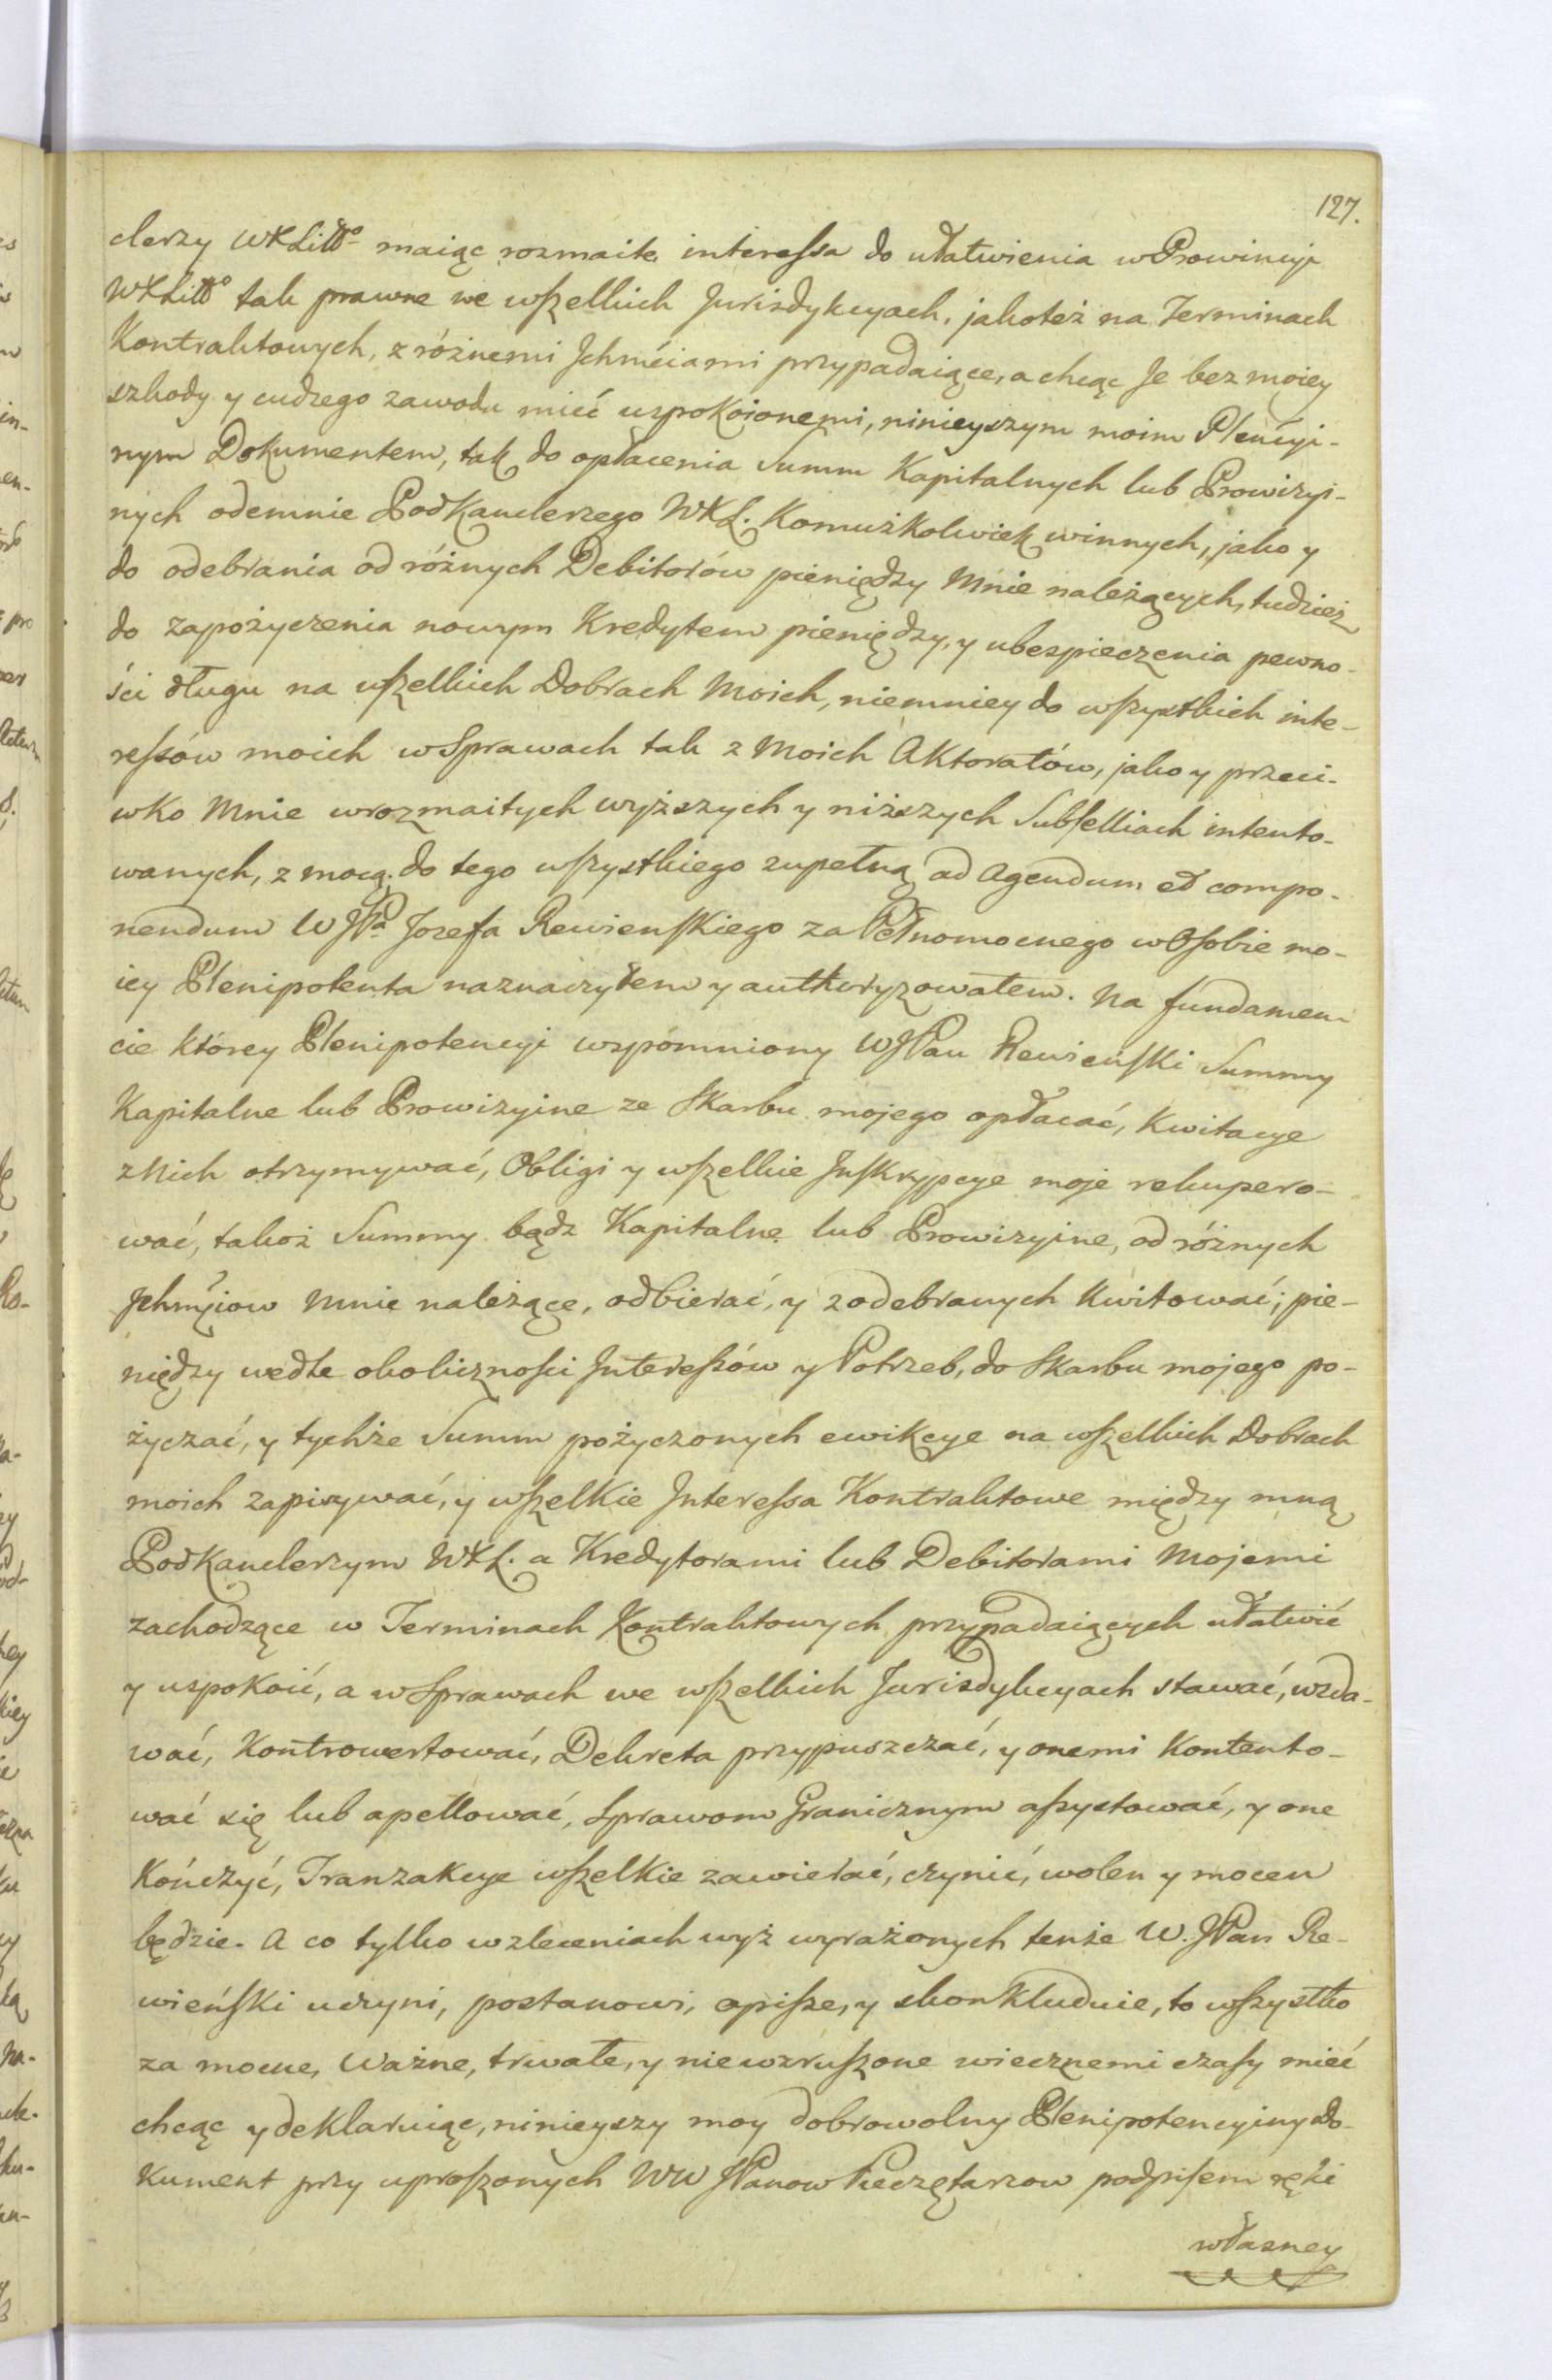 127.
clerzy WXLitt° maiąc rozmaite interessa do ułatwienia w Prowincyi
WXLitt° tak prawne we wszelkich Jurisdykcyach, jakoteż na Terminach
Kontraktowych, z różnemi Jchmściami przypadaiące, a chcąc Je bez moiey
szkody y cudzego zawodu mieć uspokoionemi, ninieyszym moim Plencyi-
nym Dokumentem, tak do opłacenia Summ Kapitalnych lub Prowizyi-
nych odemnie Podkanclerzego WXL. Komużkolwiek winnych, jako y
do odebrania od różnych Debitorów pieniędzy Mnie należących, tudzież
do zapożyczenia nowym Kredytem pieniędzy, y ubespieczenia pewno-
ści długu na wszelkich Dobrach Moich, niemniey do wszystkich inte-
ressów moich w Sprawach tak z Moich Aktoratów, jako y przeci-
wko Mnie w rozmaitych wyższych y niższych Subselliach intento-
wanych, z mocą do tego wszystkiego zupełną ad agendum et compo-
nendum WJPa Jozefa Rewienskiego za Pełnomocnego w Osobie mo-
iey Plenipotenta naznaczyłem y authoryzowałem. Na fundamen-
cie którey Plenipotencyi wspomniony WJPan Rewieński Summy
Kapitalne lub Prowizyine ze Skarbu mojego opłacać, Kwitacye
z Nich otrzymywać, Obligi y wszelkie Inskrypcye moje rekupero-
wać, takoż Summy bądz Kapitalne lub Prowizyine, od różnych
Jchmściow Mnie należące, odbierać, y z odebranych Kwitować; pie-
niędzy wedle okoliczności Interessów y Potrzeb, do Skarbu mojego po-
życzać, y tychże Summ pożyczonych ewikcye na wszelkich Dobrach
moich zapisywać, y wszelkie Interessa Kontraktowe między mną
Podkanclerzym WXL. a Kredytorami lub Debitorami Mojemi
zachodzące w Terminach Kontraktowych przypadaiących ułatwić
y uspokoić, a w Sprawach we wszelkich Jurisdykcyach stawać, wzda-
wać, Kontrowertować, Dekreta przypuszczać, y onemi Kontento-
wać się lub apellować, Sprawom Granicznym assystować, y one
Kończyć, Tranzakcye wszelkie zawierać, czynić, wolen y mocen
będzie. A co tylko w zleceniach wyż wyrażonych tenże W. JPan Re-
wieński uczyni, postanowi, opisze, y skonkluduie, to wszystko
za mocne, Ważne, trwałe, y niewzruszone wiecznemi czasy mieć
chcąc y deklaruiąc, ninieyszy moy dobrowolny Plenipotencyiny Do-
kument przy uproszonych WW JPanow Pieczętarzow podpisem ręki
własney